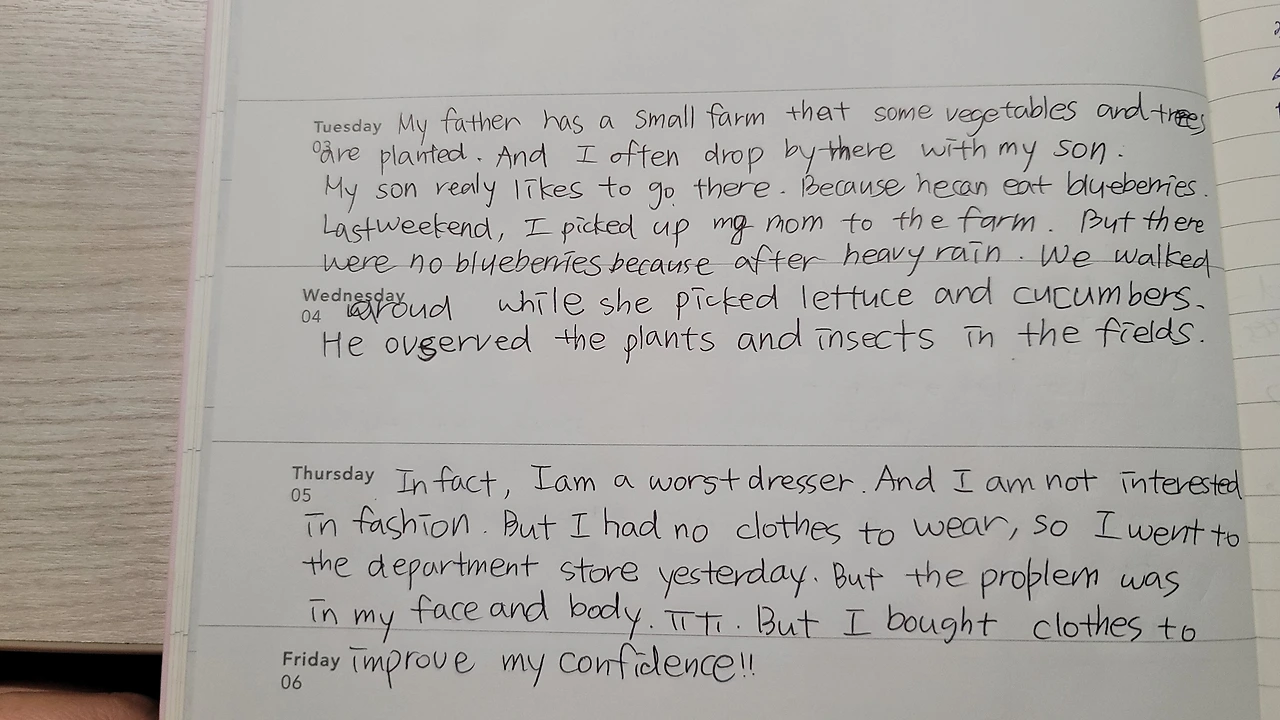 Tuesday My father has a small farm that some vegetables and trees
03 are planted. And I often drop by there with my son.
My son realy likes to go there. Because he can eat blueberries.
Last weekend, I picked up my mom to the farm. But there
were no blueberries because after heavy rain. We walked
Wednesday
04 aroud while she picked lettuce and cucumbers.
He ovserved the plants and insects in the fields.
Thursday In fact, I am a worst dresser. And I am not interested
05
in fashion. But I had no clothes to wear, so I went to
the department store yesterday. But the problem was
in my face and body. ㅠㅠ. But I bought clothes to
Friday improve my confidence!!
06